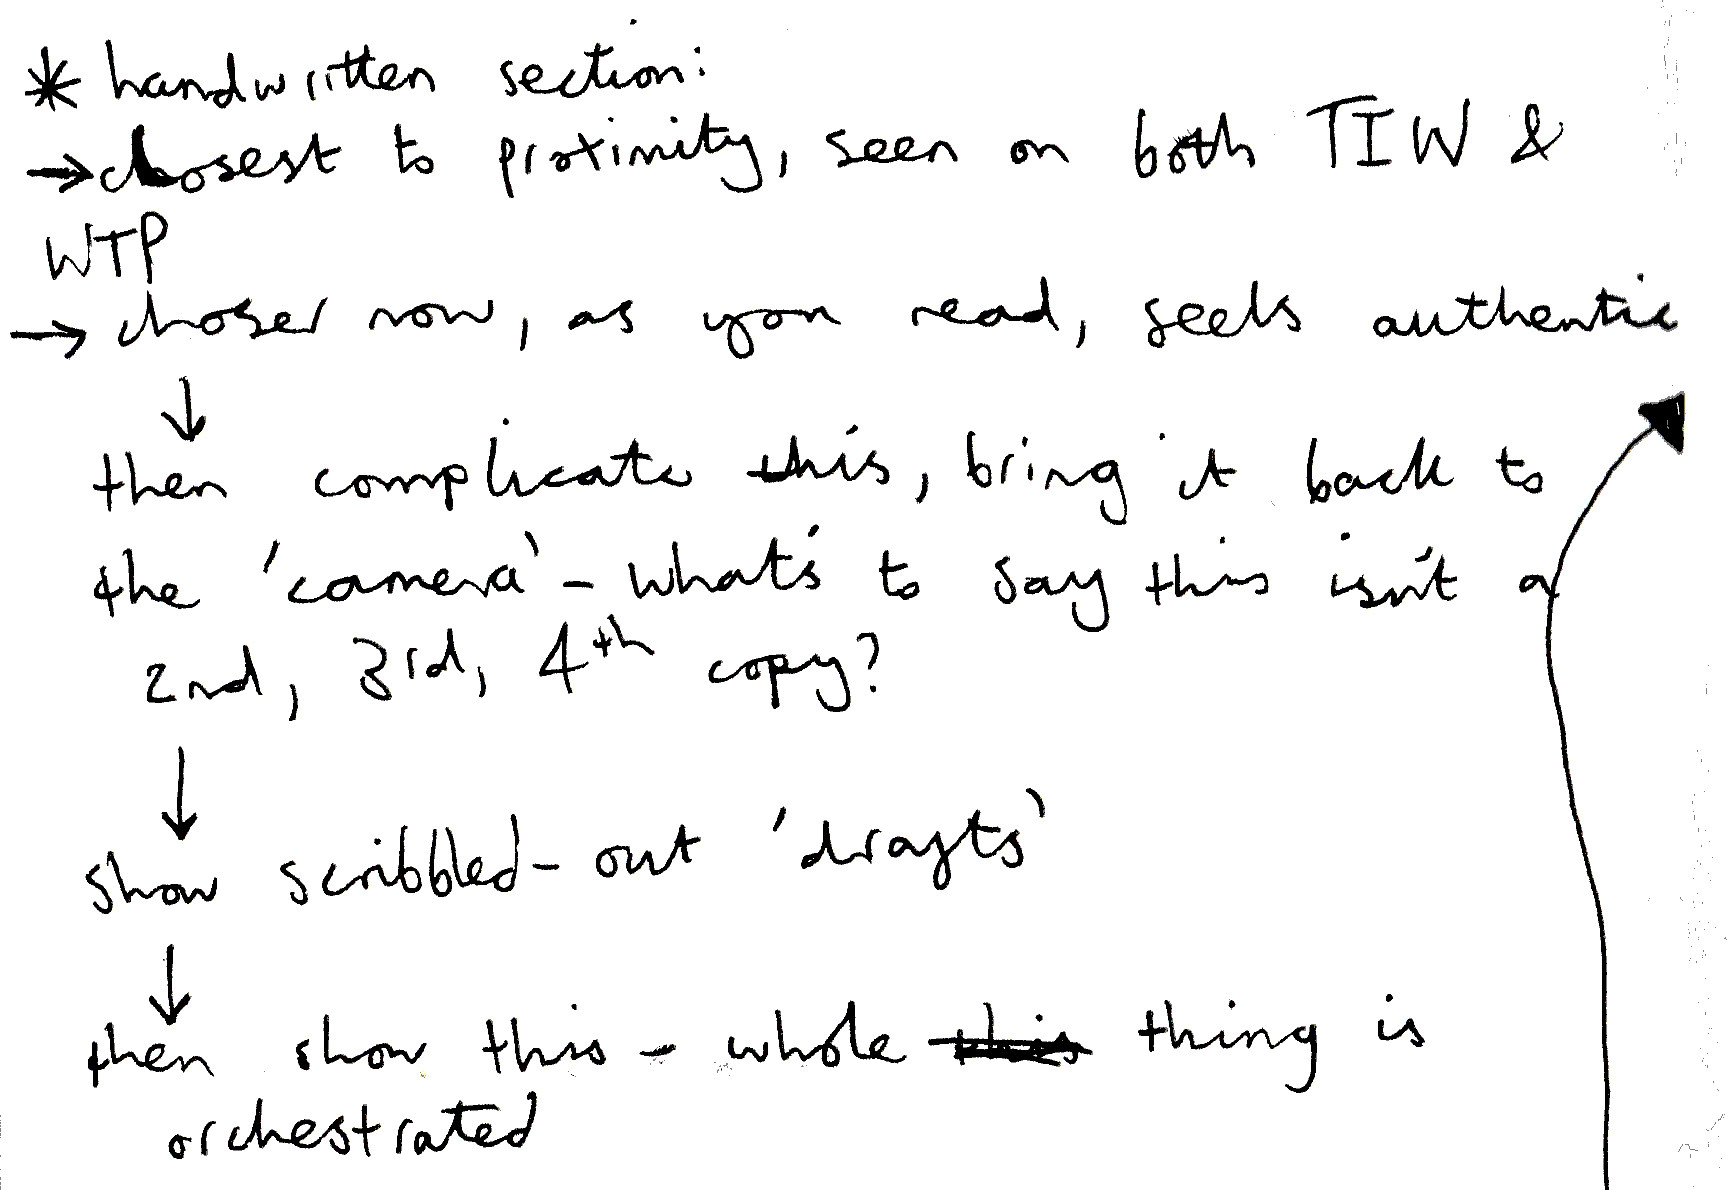 * handwritten section:
→ closest to proximity, seen on both TIW &
WTP
→ choser now, as you read, seeks authentic
↓
then complicate this, bring it back to
the 'camera' - what's to say this isn't a
2nd, 3rd, 4th copy?
↓
show scribbled-out 'drafts'
↓
then show this - whole this thing is
orchestrated